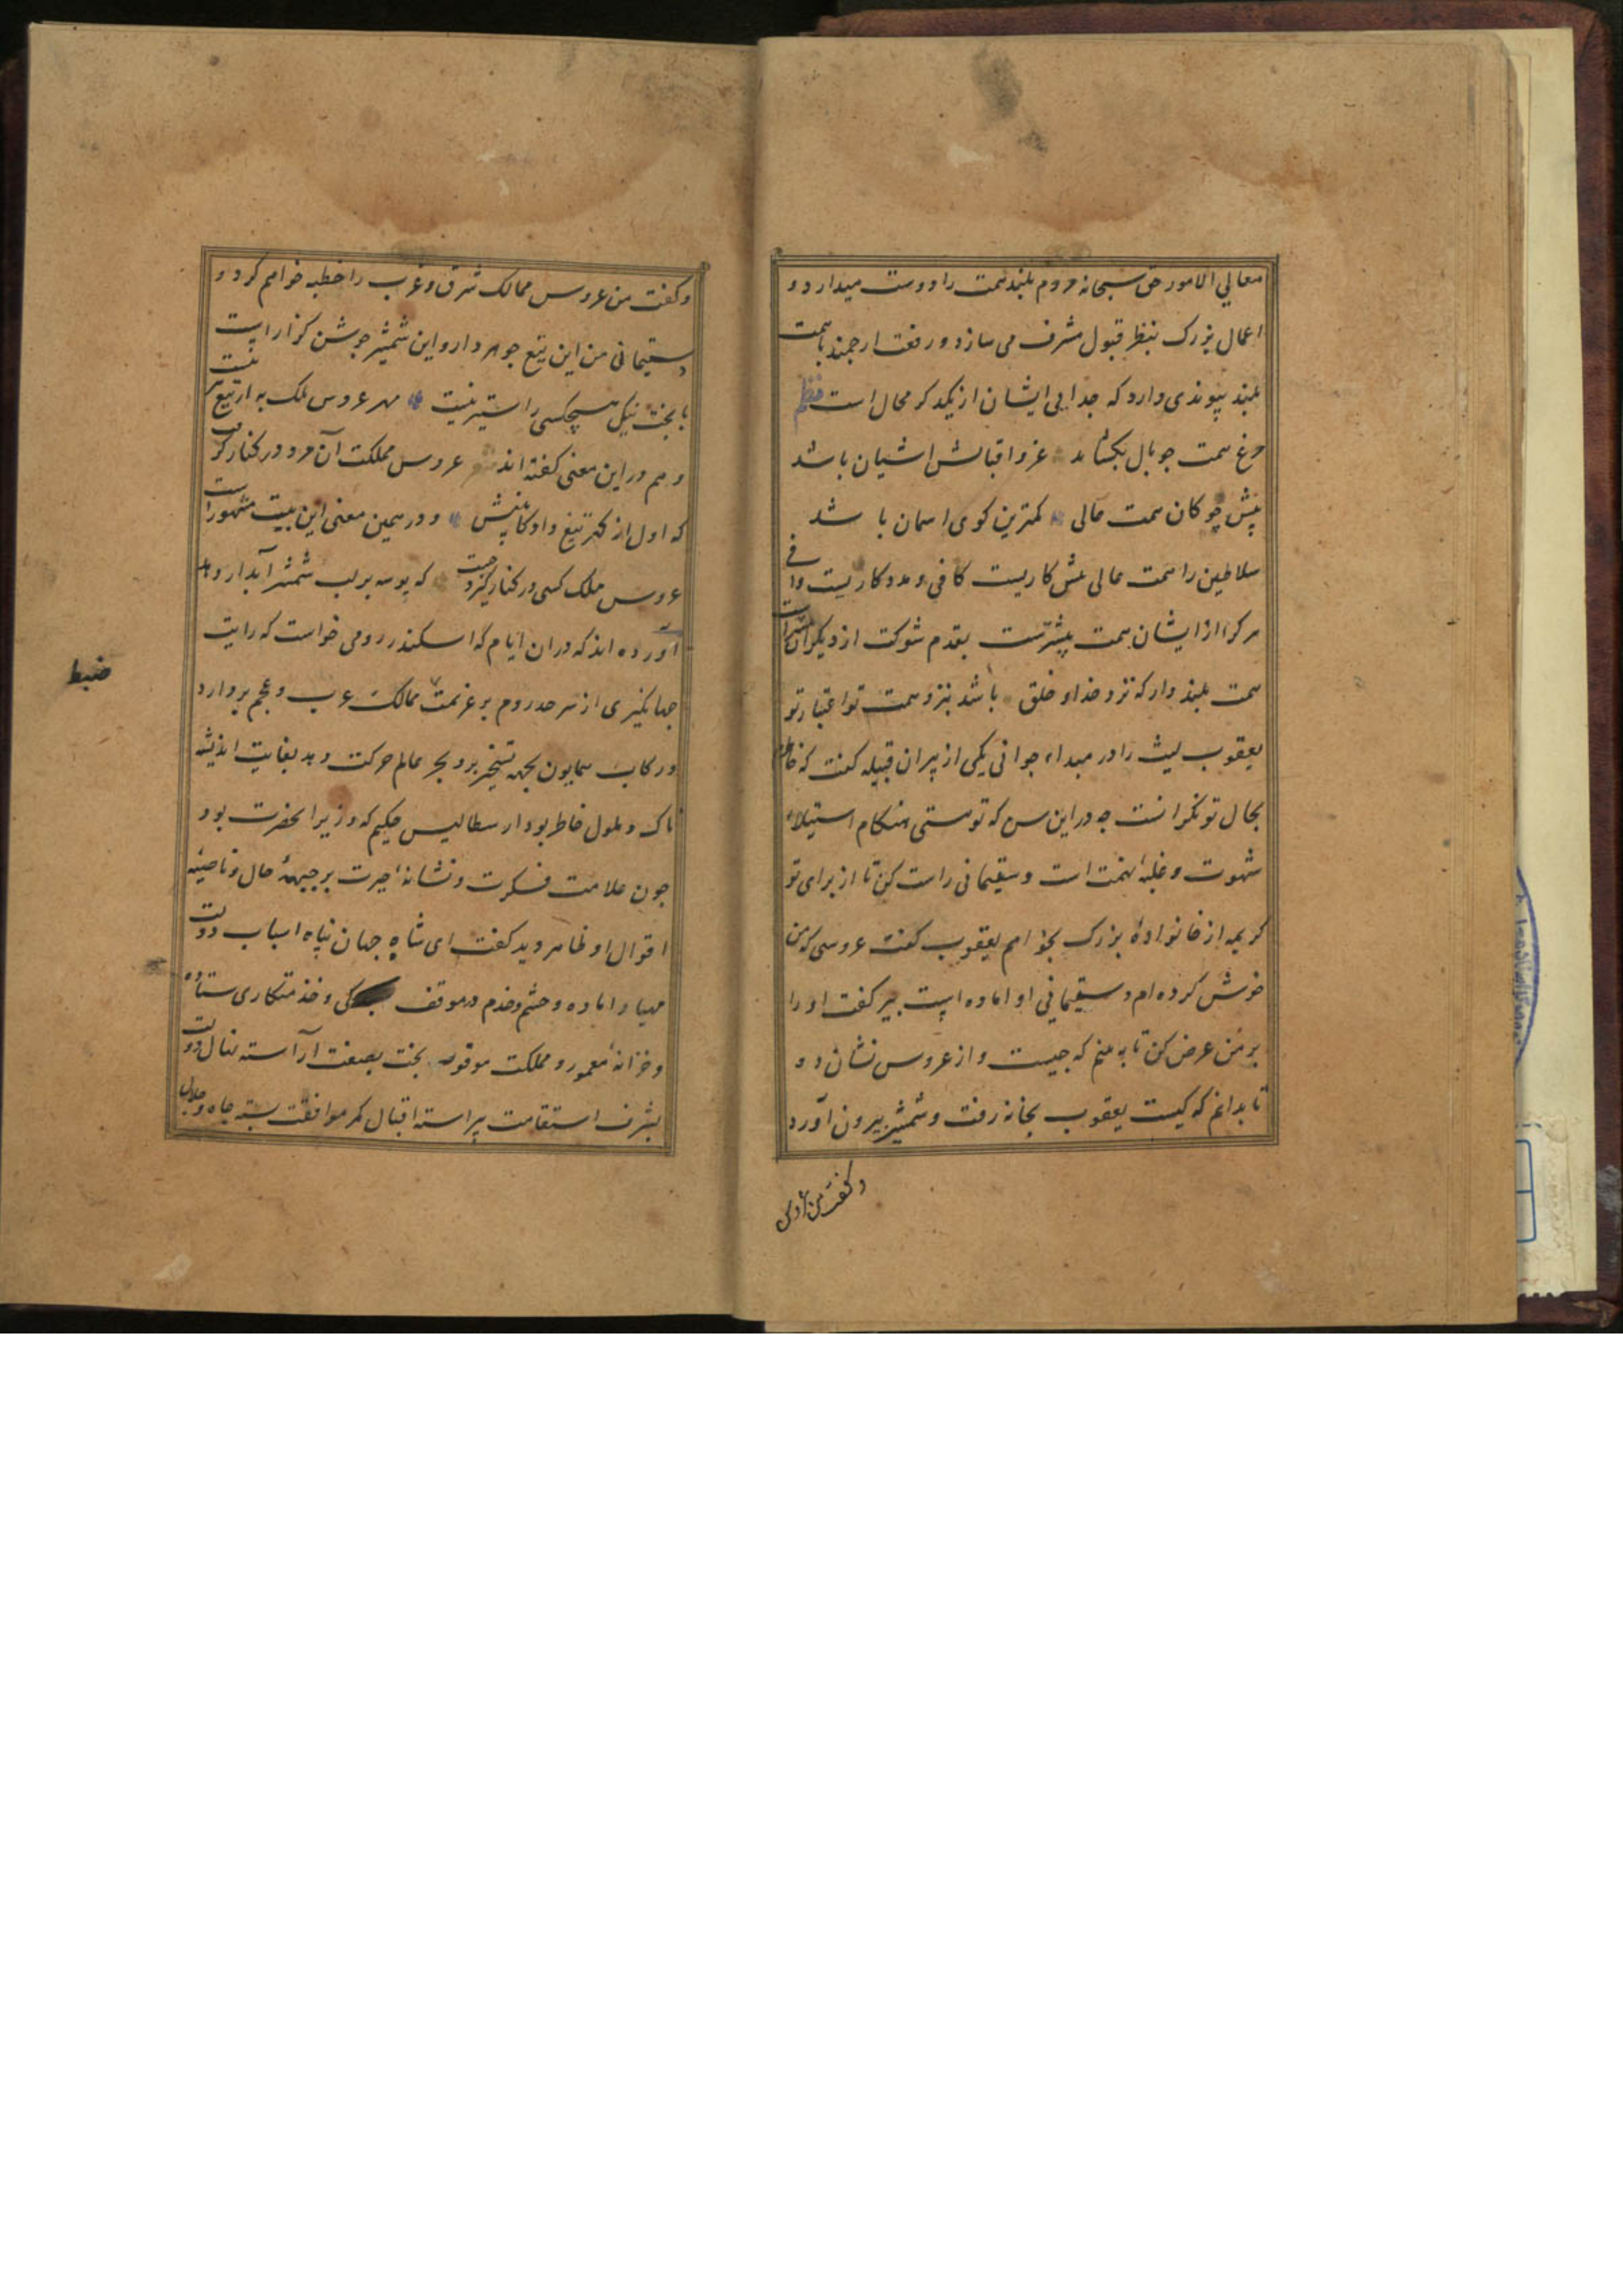 معالی الامور حق سبحانه مردم بلند همت را دوست میدارد و
اعمال بزرک بنظر قبول مشرف می سازد و رفعت ارجمند با همت
بلند پیوندی دارد که جدایی ایشان از یکدکر محال است نظم
مرغ همت جو بال بکشاید عز و اقبالش اشیان باشد
پیش چوکان همت عالی کمترین کوی اسمان با شد
سلاطین را همت عالی مش کاریست کافی و مددکاریست وافی
هر کرا از ایشان همت پیشترست بقدم شوکت از دیکران
همت بلند دار که نزد خدا و خلق باشد بنزد همت تو اعتبار تو
یعقوب لیث را در مبداء جوانی یکی از پیران قبیله کفت که خاطرم
بحال تو نکرانست جه در این سن که تو هستی هنکام استیلاء
شهوت و غلبهٔ نهمت است دستیمانی راست کن تا از برای تو
کریمه از خانوادهٔ بزرک بخواهم یعقوب کفت عروسی که من
خوش کرده ام دستیمانی او اماده است پیر کفت او را
بر من عرض کن تا به بینم که جیست و از عروس نشان ده
تا بدانم که کیست یعقوب بخانه رفت و شمشیر بیرون آورد
و کفت من عروس
و کفت من عروس ممالک شرق و غرب را خطبه خواهم کرد و
دستیمانی من این تیغ جوهر دار و این شمشیر جوشن کزار است
با بخت نیک هیچکسی را ستیز نیست مهر عروس ملک به از تیغ تیز نیست
و هم در این معنی کفته اند عروس مملکت آن مرد در کنار کرفت
که اول از کهر تیغ داد کابینش و در همین معنی این بیت مشهور است
عروس ملک کسی در کنار کیرد جست که بوسه بر لب شمشیر آبدار دهد
آورده اند که در ان ایام که اسکندر رومی خواست که رایت
جهانکیری از سر حد روم بر عزیمت ممالک عرب و عجم بر دارد
و رکاب همایون بجهة تسخیر بر و بحر عالم حرکت دهد بغایت اندیشه
ناک و ملول خاطر بود ارسطالیس حکیم که وزیر انحضرت بود
جون علامت فکرت و نشانهٔ حیرت بر جبههٔ حال و ناصیهٔ
اقوال او ظاهر دید کفت ای شاه جهان پناه اسباب دولت
مهیا و اماده و حشم و خدم در موقف و خدمتکاری ستاده
و خزانهٔ معمور و مملکت موفور بخت بصفت آراسته نهال دولت
بشرف استقامت پیراسته اقبال کمر موافقت بسته جاه و جلال
ضبط